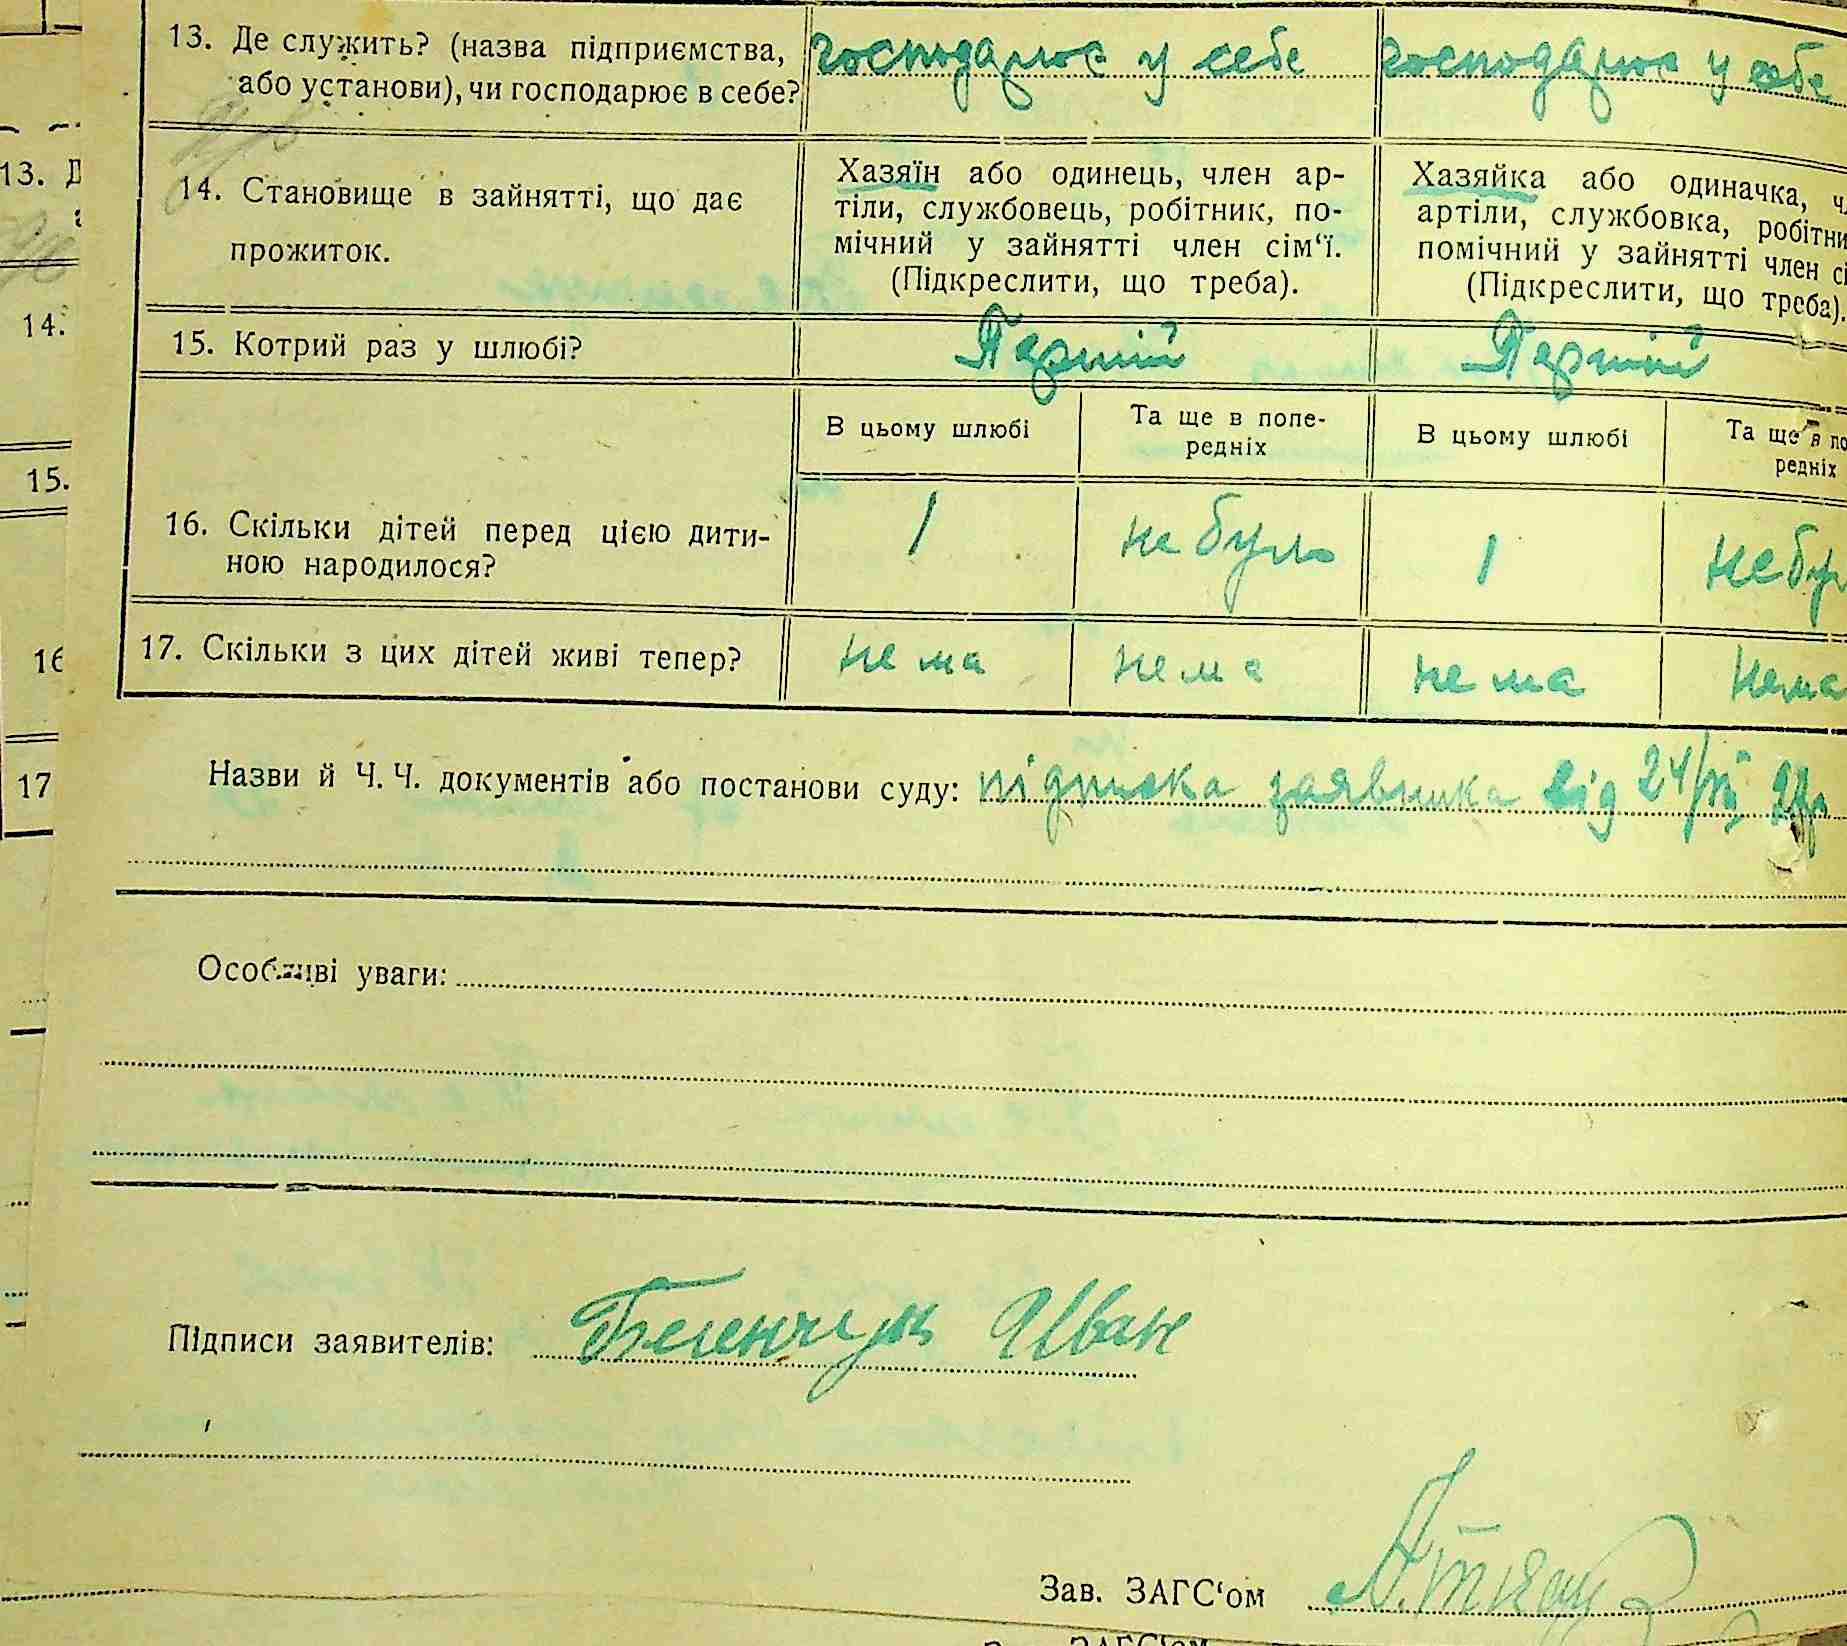 13. Де служить? (назва підприємства, господарює у себе господарює у себе
або установи), чи господарює в себе?
14. Становище в зайнятті, що дає
прожиток.
Хазяїн або одинець, член ар-
тіли, службовець, робітник, по-
мічний у зайнятті член сім‘ї.
(Підкреслити, що треба).
Хазяйка або одиначка, ч
артіли, службовка, робітни
помічний у зайнятті член сі
(Підкреслити, що треба).
15. Котрий раз у шлюбі? Перший Перший
В цьому шлюбі
Та ще в попе-
редніх
В цьому шлюбі
Та ще в по
редніх
16. Скільки дітей перед цією дити-
ною народилося?
1 не було 1 не бу
17. Скільки з цих дітей живі тепер? нема нема нема нема
Назви й Ч. Ч. документів або постанови суду: підписка заявника від 24/
Особливі уваги:
Підписи заявителів: Іван
Зав. ЗАГС‘ом
13. Д
14.
15.
16
17
Зав. ЗАГС‘ом